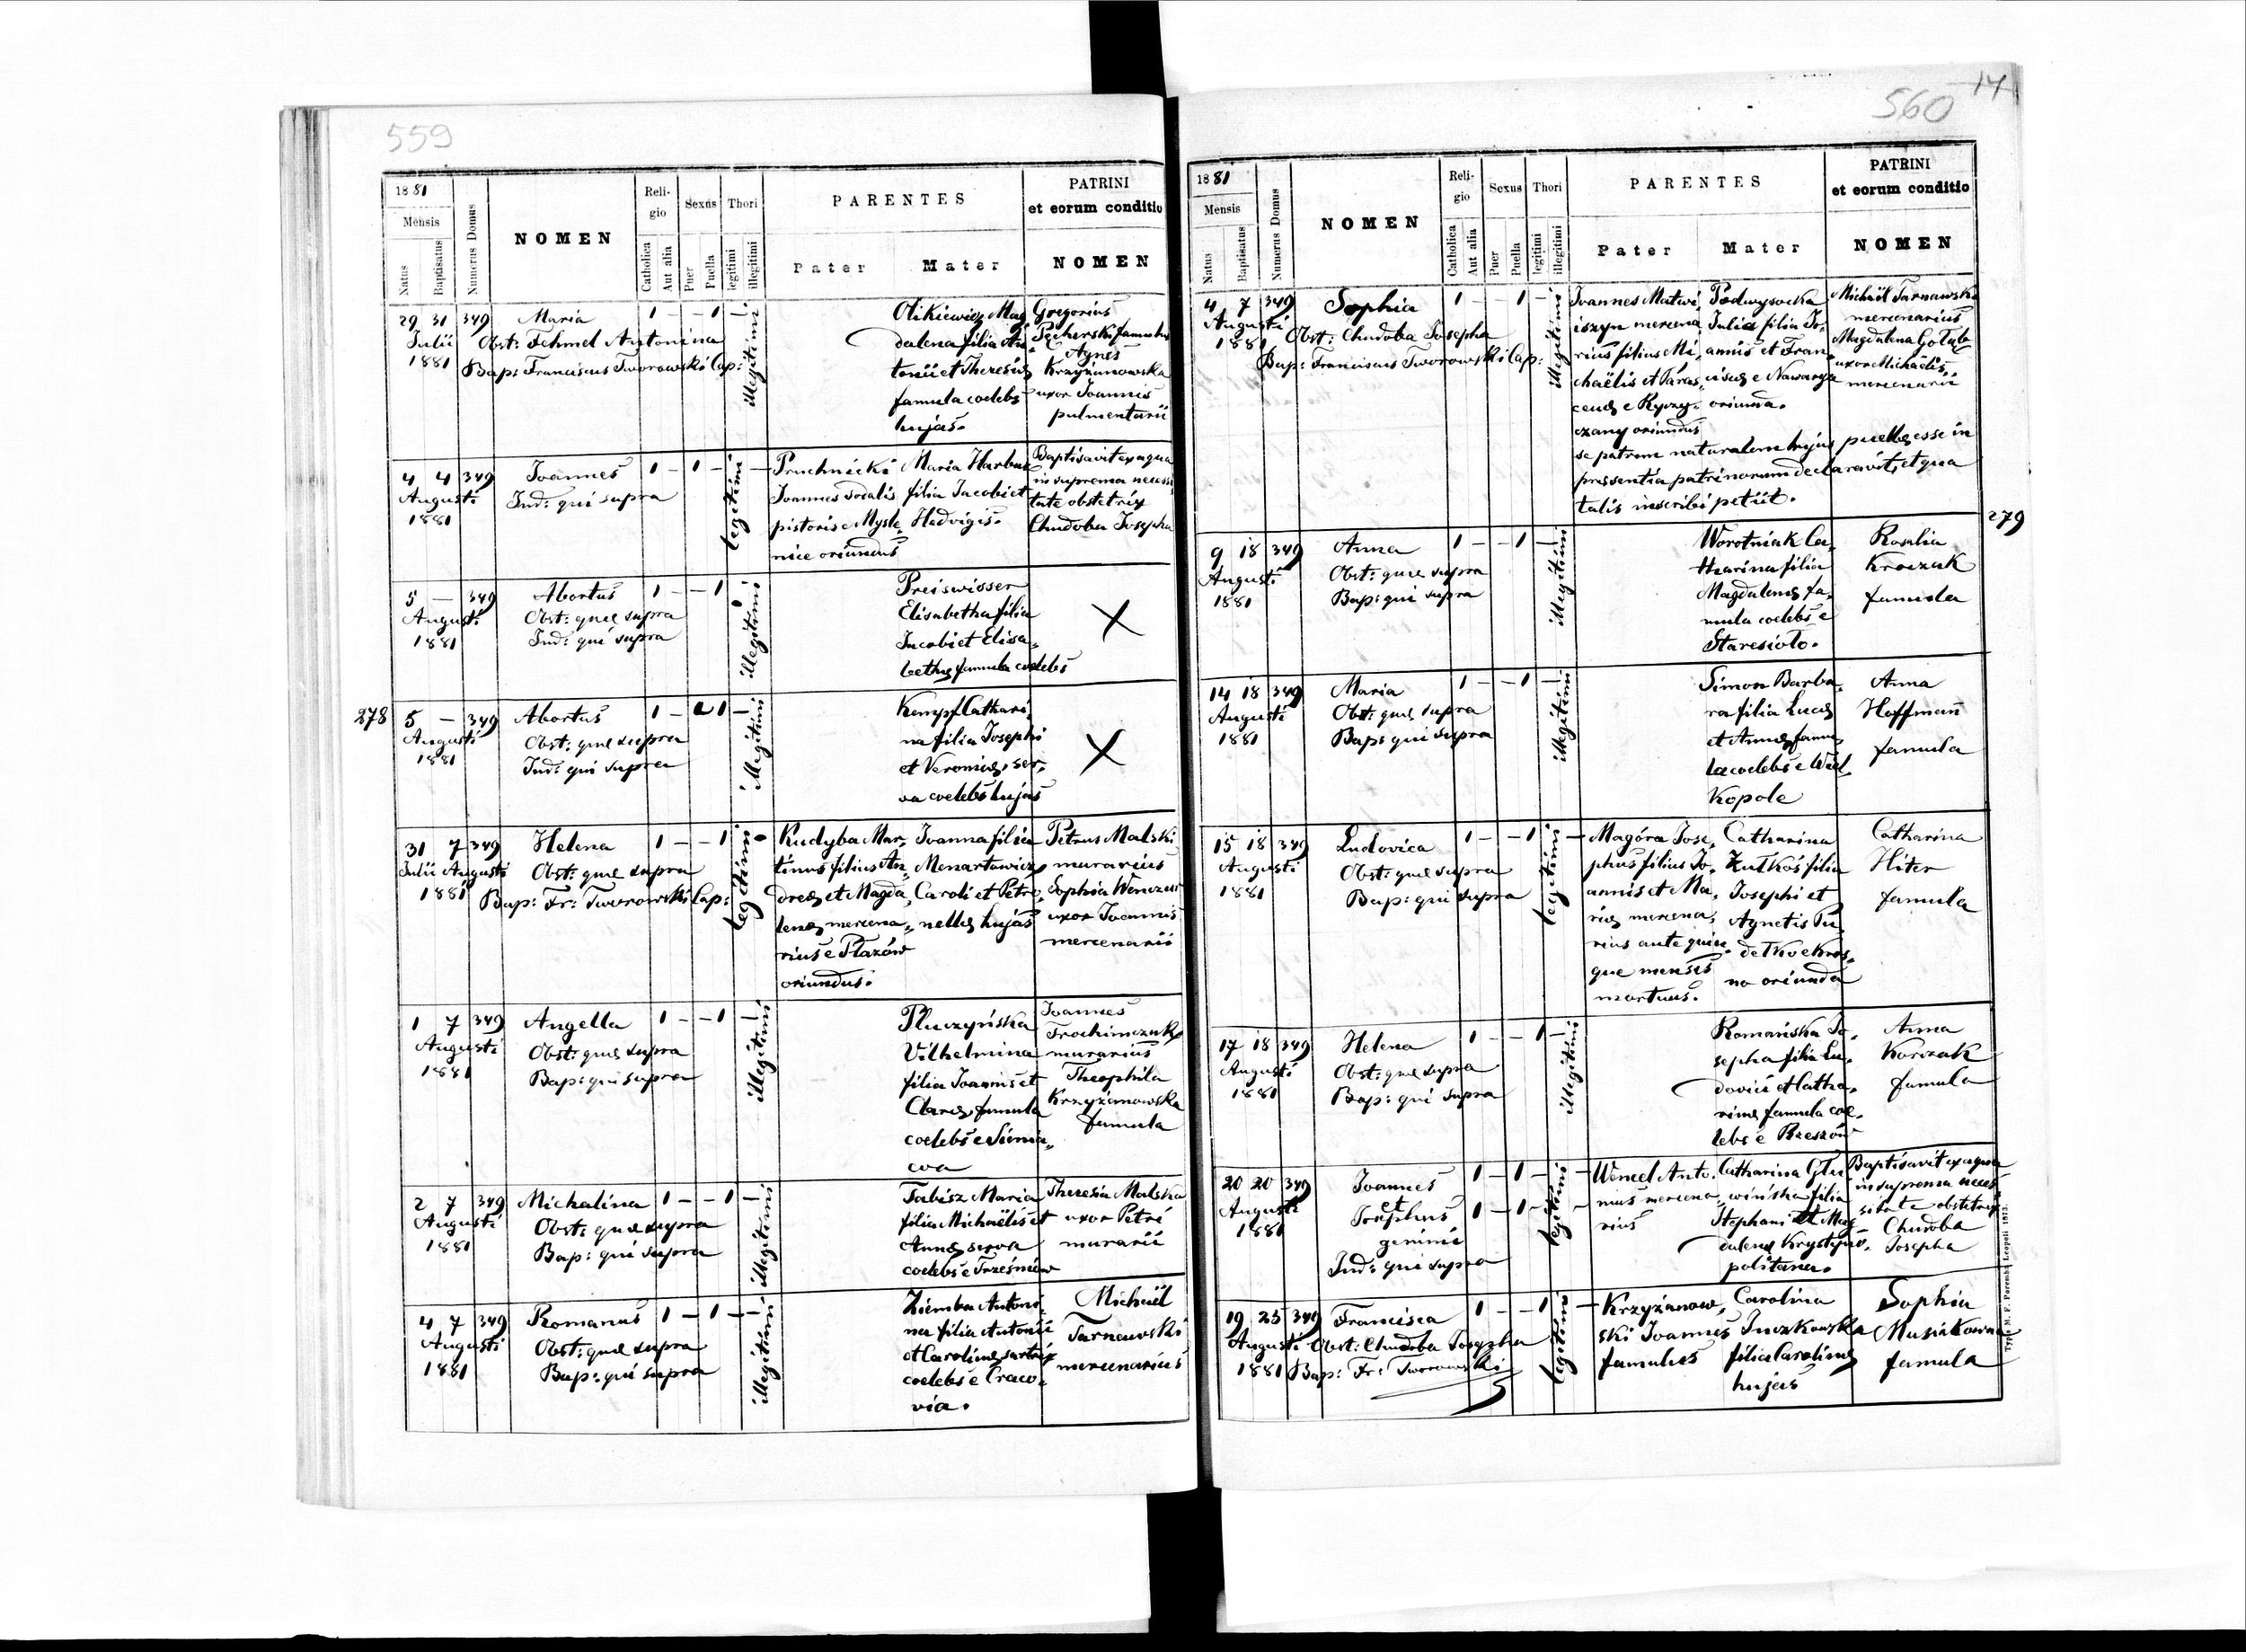 559
1881
Mensis
Natus
Baptisatus
Numerus Domus
NOMEN
Reli-
gio
Catholica
Aut alia
Sexus
Puer
Puella
Thori
legitimi
illegitimi
PARENTES
Pater
Mater
PATRINI
et eorum conditio
NOMEN
29 31 349
Julii
1881
Maria
Obst: Fehmel Antonina
Bap: Franciscus Tworowski Cap:
1 – – 1 –
illegitimi
Olikiewicz Mag
dalena filia An-
tonii et Theresiæ
famula coelebs
hujas.
Gregorius
Pecherski famulus
Agnes
Krzyżanowska
uxor Joannis
pulmentarii
4 4 349
Augusti
1881
Joannes
Ind: qui supra
1 – 1 – –
legitimi
Pruchnicki
Joannes sodalis
pistoris e Mysle-
nice oriundus
Maria Harbut
filia Jacobi et
Hedvigis.
Baptisavit ex aqua
in suprema necessi-
tate obstetrix
Chudoba Josepha
5 – 349
Augusti
1881
Abortus
Obst: quæ supra
Ind: qui supra
1 – – 1
illegitimi
Preiswisser
Elisabetha filia
Jacobi et Elisa-
bethæ famula coelebs
X
278
5 – 349
Augusti
1881
Abortus
Obst: quæ supra
Ind: qui supra
1 – 1 –
illegitimi
Kempf Cathari-
na filia Josephi
et Veronicæ, ser-
va coelebs hujas
X
31 7 349
Julii Augusti
1881
Helena
Obst: quæ supra
Bap: Fr: Tworowski Cap:
1 – – 1
legitimi
Kudyba Mar-
tinus filius An-
dreæ et Magda-
lenæ mercena-
rius e Płazów
oriundus.
Joanna filia
Menartowicz
Caroli et Petro-
nellæ hujas
Petrus Malski
murarius
Sophia Wenczur
uxor Joannis
mercenarii
1 7 349
Augusti
1881
Angella
Obst: quæ supra
Bap: qui supra
1 – – 1 –
illegitimi
Pluczyńska
Vilhelmina
filia Joannis et
Claræ famula
coelebs e Sienia-
wa
Joannes
Trochimczuk
murarius
Theophila
Krzyżanowska
famula
2 7 349
Augusti
1881
Michalina
Obst: quæ supra
Bap: qui supra
1 – – 1 –
illegitimi
Tabisz Maria
filia Michaëlis et
Annæ serva
coelebs e Trześniów
Theresia Malska
uxor Petri
murarii
4 7 349
Augusti
1881
Romanus
Obst: quæ supra
Bap: qui supra
1 – 1 – –
illegitimi
Ziemba Antoni-
na filia Antonii
et Carolinæ sartrix
coelebs e Craco-
via.
Michaël
Tarnawski
mercenarius
560
14
1881
Mensis
Natus
Baptisatus
Numerus Domus
NOMEN
Reli-
gio
Catholica
Aut alia
Sexus
Puer
Puella
Thori
legitimi
illegitimi
PARENTES
Pater
Mater
PATRINI
et eorum conditio
NOMEN
4 7 349
Augusti
1881
Sophia
Obst: Chudoba Josepha
Bap: Franciscus Tworowski Cap:
1 – – 1 –
illegitimi
Joannes Matwi-
iszyn mercena-
rius filius Mi-
chaëlis et Paras-
ceuæ e Kyrzy-
czany oriundus
Podwysocka
Julia filia Jo-
annis et Fran-
ciscæ e Nawarya
oriunda.
se patrem naturalem hujus puellæ esse in
præsentia patrinorum declaravit, et qua
talis inscribi petiit.
Michaël Tarnawski
mercenarius
Magdalena Gołąb
uxor Michaëlis
mercenarii
279
9 18 349
Augusti
1881
Anna
Obst: quæ supra
Bap: qui supra
1 – – 1 –
illegitimi
Worotniak Ca-
tharina filia
Magdalenæ fa-
mula coelebs e
Staresioło.
Rosalia
Kroczak
famula
14 18 349
Augusti
1881
Maria
Obst: quæ supra
Bap: qui supra
1 – – 1 –
illegitimi
Simon Barba-
ra filia Lucæ
et Annæ famu-
la coelebs e Wiel-
kopole
Anna
Hoffmann
famula
15 18 349
Augusti
1881
Ludovica
Obst: quæ supra
Bap: qui supra
1 – – 1 –
legitimi
Magóra Jose-
phus filius Jo-
annis et Ma-
riæ mercena-
rius ante quin-
que menses
mortuus.
Catharina
Zutkoś filia
Josephi et
Agnetis Pu-
detko e Kros-
no oriunda
Catharina
Hiter
famula
17 18 349
Augusti
1881
Helena
Obst: quæ supra
Bap: qui supra
1 – – 1 –
illegitimi
Romańska Jo-
sepha filia Lu-
dovici et Catha-
rinæ famula coe-
lebs e Rzeszów
Anna
Korczak
famula
20 20 349
Augusti
1881
Joannes
et
Josephus
gemini
Ind: qui supra
1 – 1 – –
1 – 1 – –
legitimi
Wencel Anto-
nius mercena-
rius
Catharina Głu-
wińska filia
Stephani et Mag-
dalenæ Krystyno-
politana.
Baptisavit ex aqua
in suprema neces-
sitate obstetrix
Chudoba
Josepha
19 25 349
Augusti
1881
Francisca
Obst: Chudoba Josepha
Bap: Fr: Tworowski
1 – – 1 –
legitimi
Krzyżanow-
ski Joannes
famulus
Carolina
Juczkowska
filia Carolinæ
hujas
Sophia
Musiakowna
famula
Typ. M. F. Poremba Leopoli 1873.